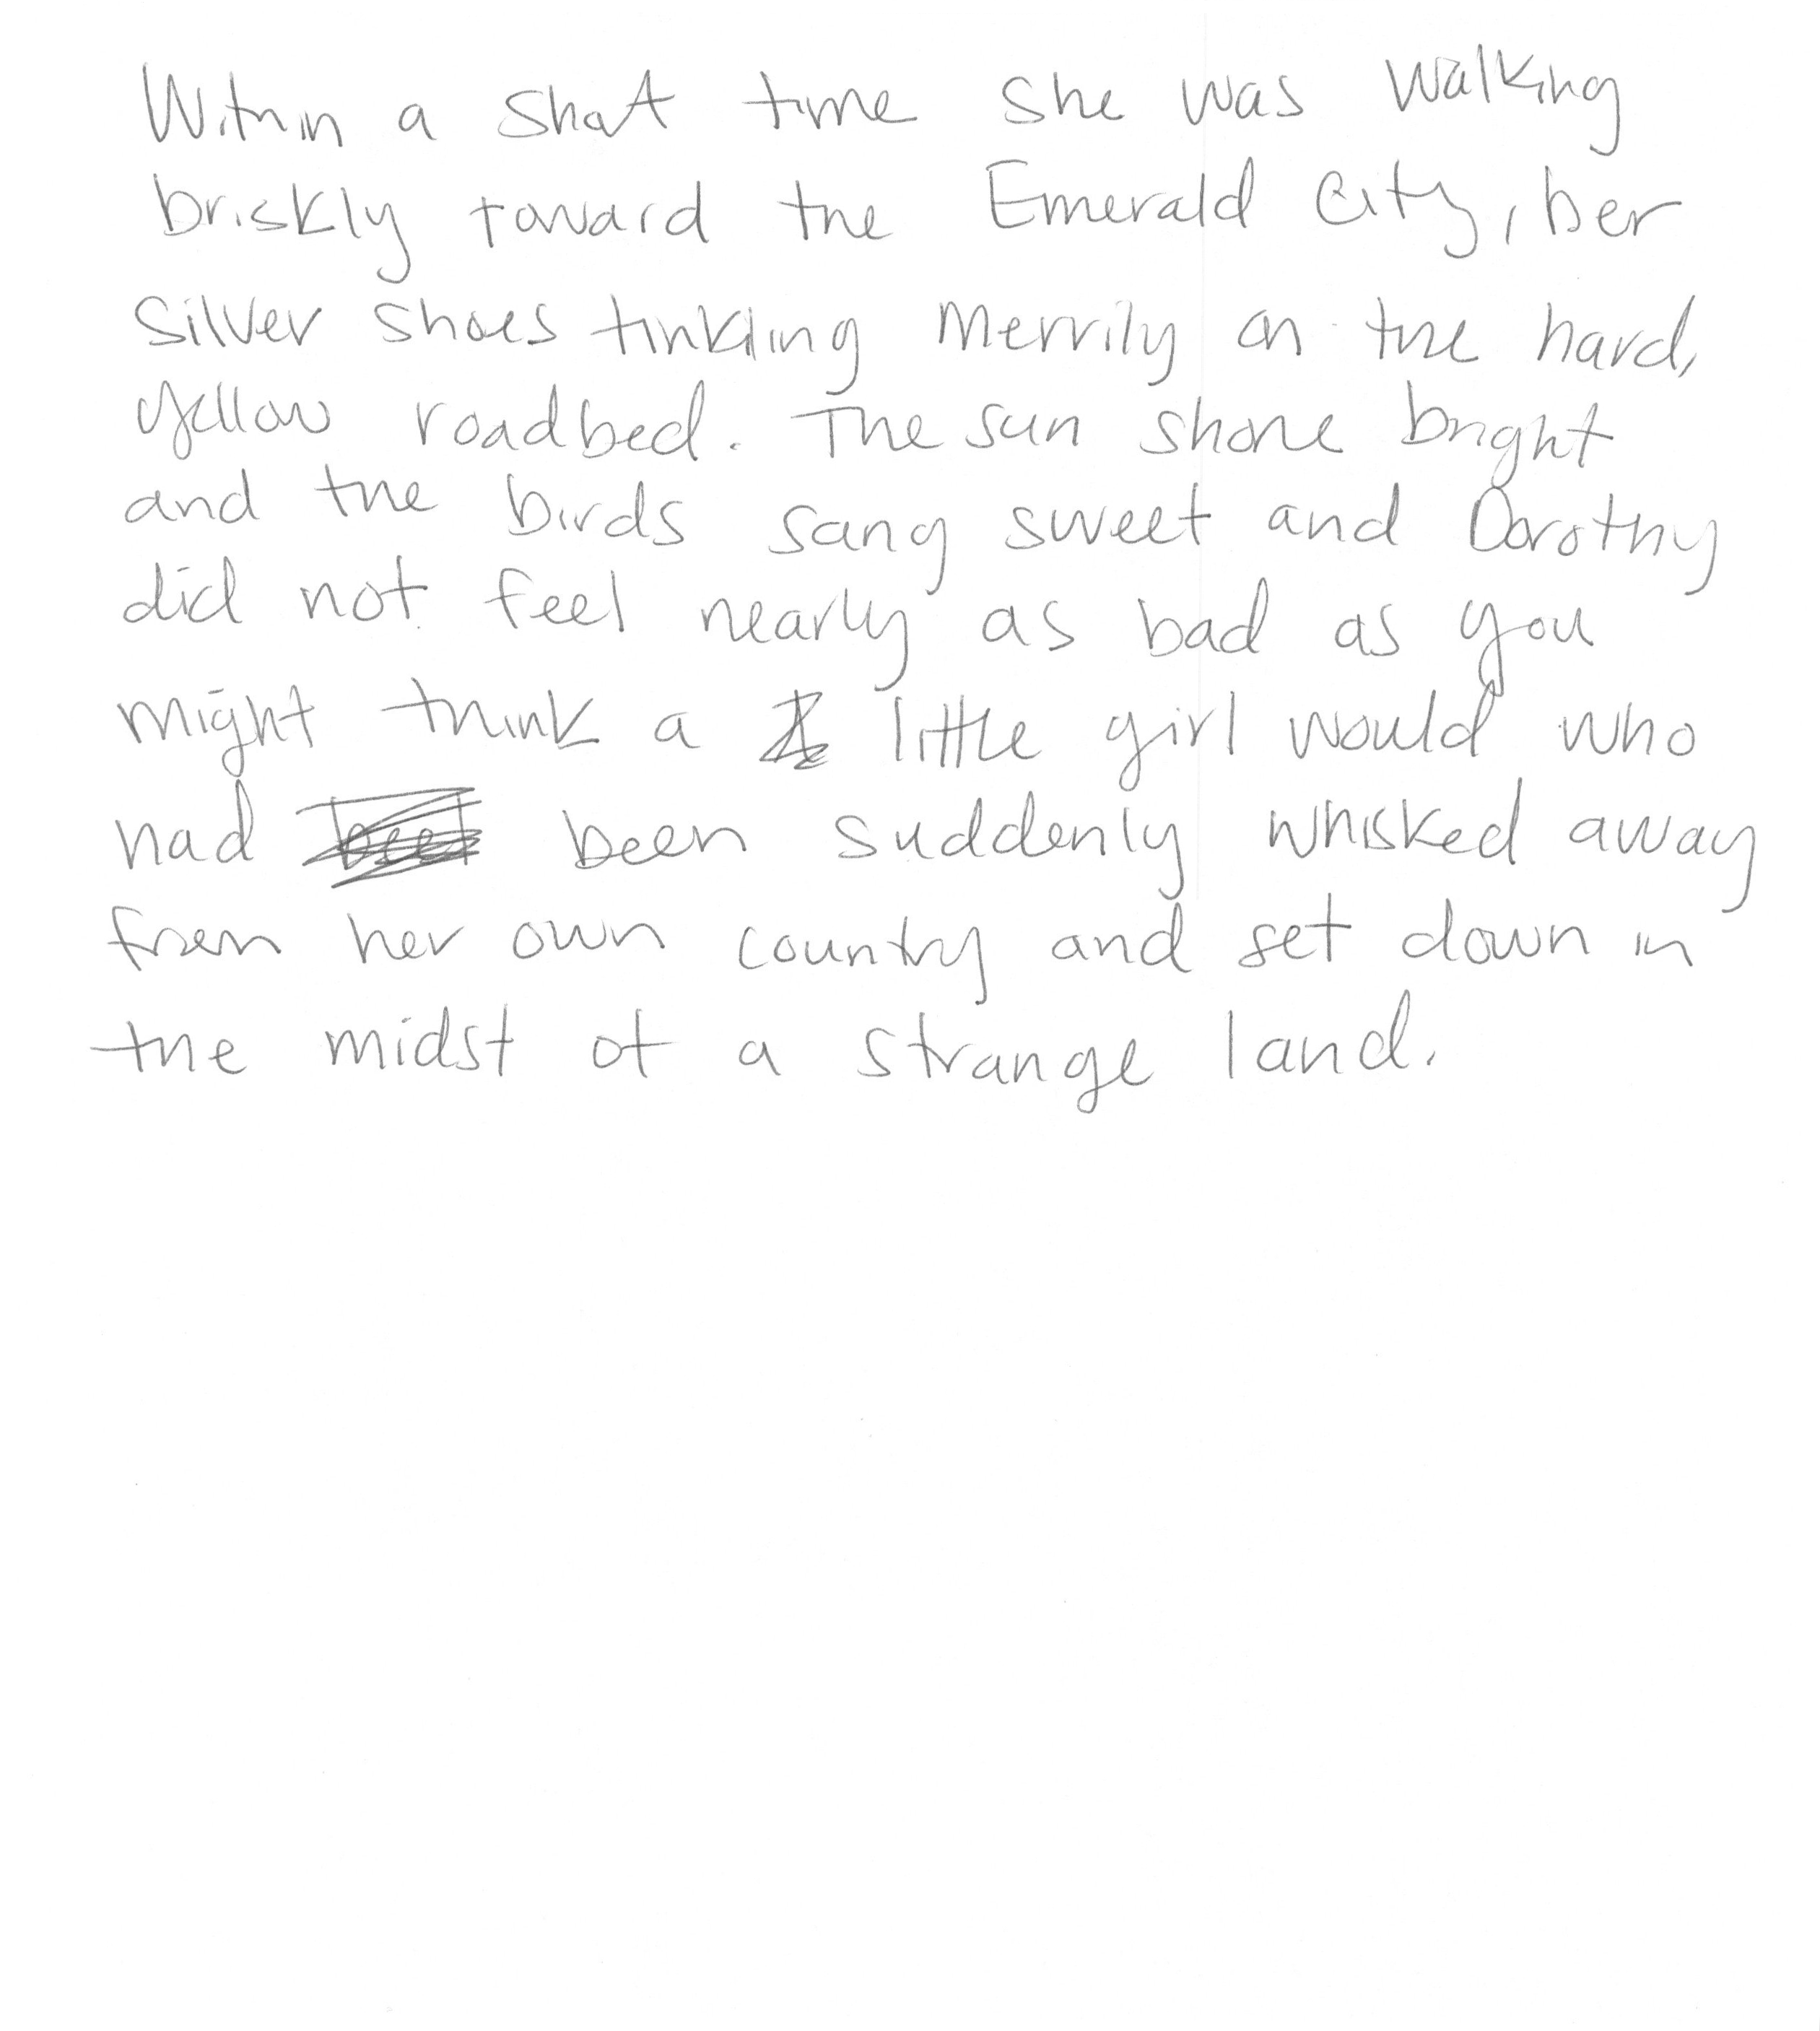 Within a short time she was walking
briskly toward the Emerald City, her
silver shoes tinkling merrily on the hard,
yellow roadbed. The sun shone bright
and the birds sang sweet and Dorothy
did not feel nearly as bad as you
might think a little girl would who
had been suddenly whisked away
from her own country and set down in
the midst of a strange land.